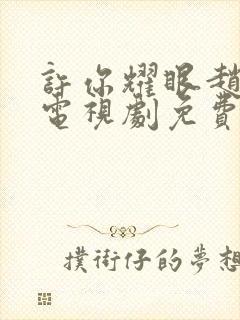 許你耀眼趙
電視劇免費
撲街仔的夢想